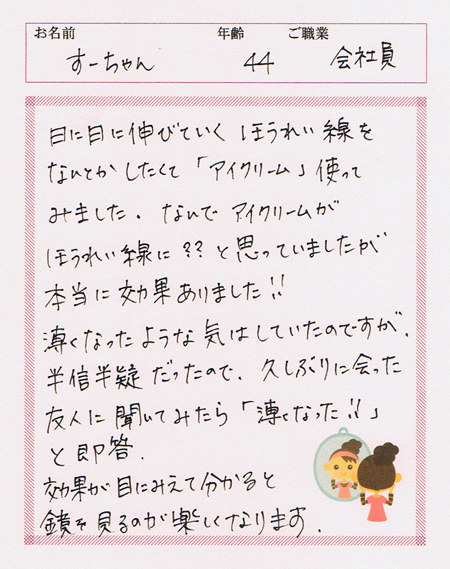 お名前 年齢 ご職業
すーちゃん 44 会社員
日に日に伸びていくほうれい線を
なんとかしたくて「アイクリーム」使って
みました。なんでアイクリームが
ほうれい線に??と思っていましたが
本当に効果ありました!!
薄くなったような気はしていたのですが、
半信半疑だったので、久しぶりに会った
友人に聞いてみたら「薄くなった!!」
と即答.
効果が目にみえて分かると
鏡を見るのが楽しくなります.